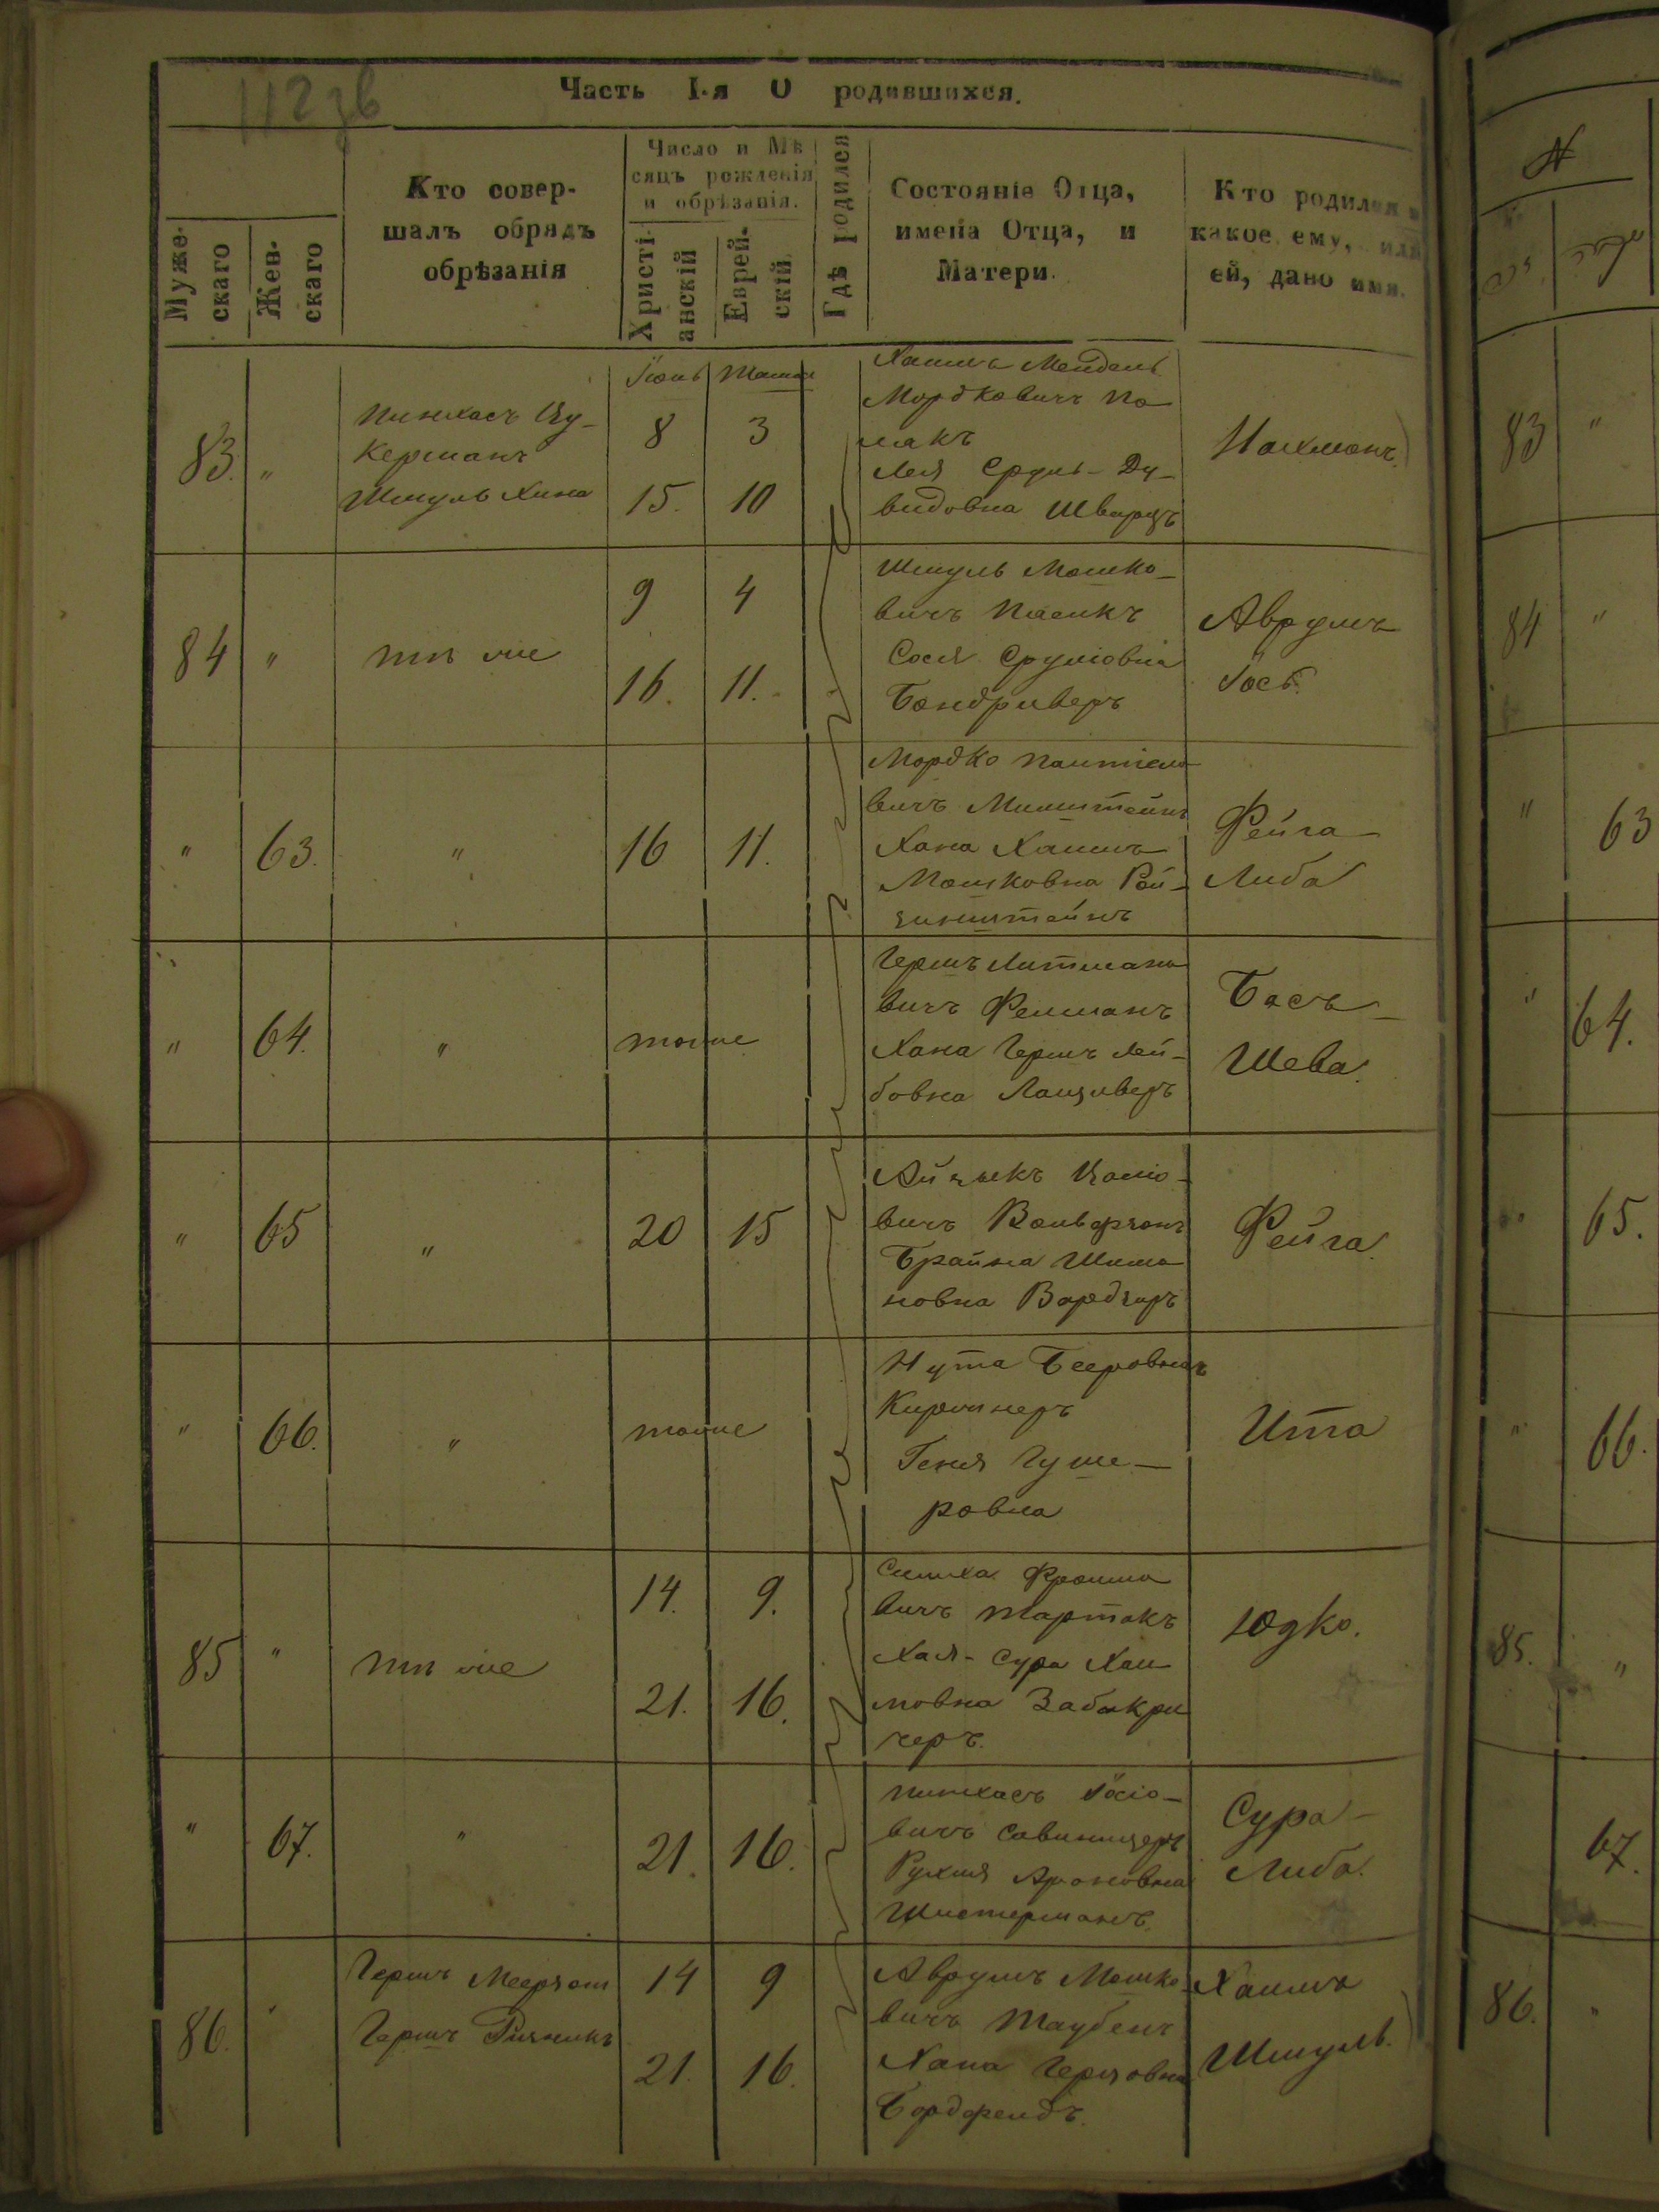 112 зв
Часть I-я О родившихся.
Муже-
скаго
Жен-
скаго
Кто совер-
шалъ обрядъ
обрѣзанія
Число и Мѣ
сяцъ рожденія
и обрѣзанія.
Христі-
анскій
Еврей-
скій
Гдѣ родился
Состояніе Отца,
имена Отца, и
Матери.
Кто родился и
какое ему, или
ей, дано имя.
Іюнь
83. "
Пинхасъ Цу-
керманъ
Шмуль Хина
8 3
15. 10
Хаимъ Мендель
Мордковичъ По
лакъ
Лея Сруль-Ду-
видовна Шварцъ
Нахманъ.
84 "
тѣ же
9 4
16. 11.
Шмуль Мошко-
вичъ Пасикъ
Сося Сруліовна
Бондриверъ
Аврумъ
Іось.
" 63. "
16 11.
Мордко
вичъ Милштейнъ
Хана Хаимъ
Мошковна Рой-
зинштейнъ
Фейга
Либа
" 64. "
тоже
Гершъ Литмано
вичъ Фелманъ
Хана Гершъ Лей-
бовна
Бася-
Шева.
" 65 "
20 15
Айзыкъ
вичъ
Брайна Шимо
новна
Фейга.
" 66. "
тоже
Нута Бееровичъ
Киржнеръ
Геня Гуше-
ровна
Ита
85 "
тѣ же
14. 9.
21. 16.
Симха Фроимо
вичъ Тартакъ
Хая-Сура Хаи
мовна Забокри
черъ.
Юдко.
" 67. "
21. 16.
Пинхасъ Іосіо-
вичъ Савиницеръ
Рухля Ароновна
Шистерманъ.
Сура-
Либа.
86. "
Гершъ Меерзон
Гершъ
14 9
21. 16.
Аврумъ Мошко
вичъ Таубенъ
Хана Герцовна
Бордфелдъ.
Хаимъ
Шмуль.
N
83 "
84 "
" 63
" 64.
" 65.
" 66.
85. "
67.
86. "